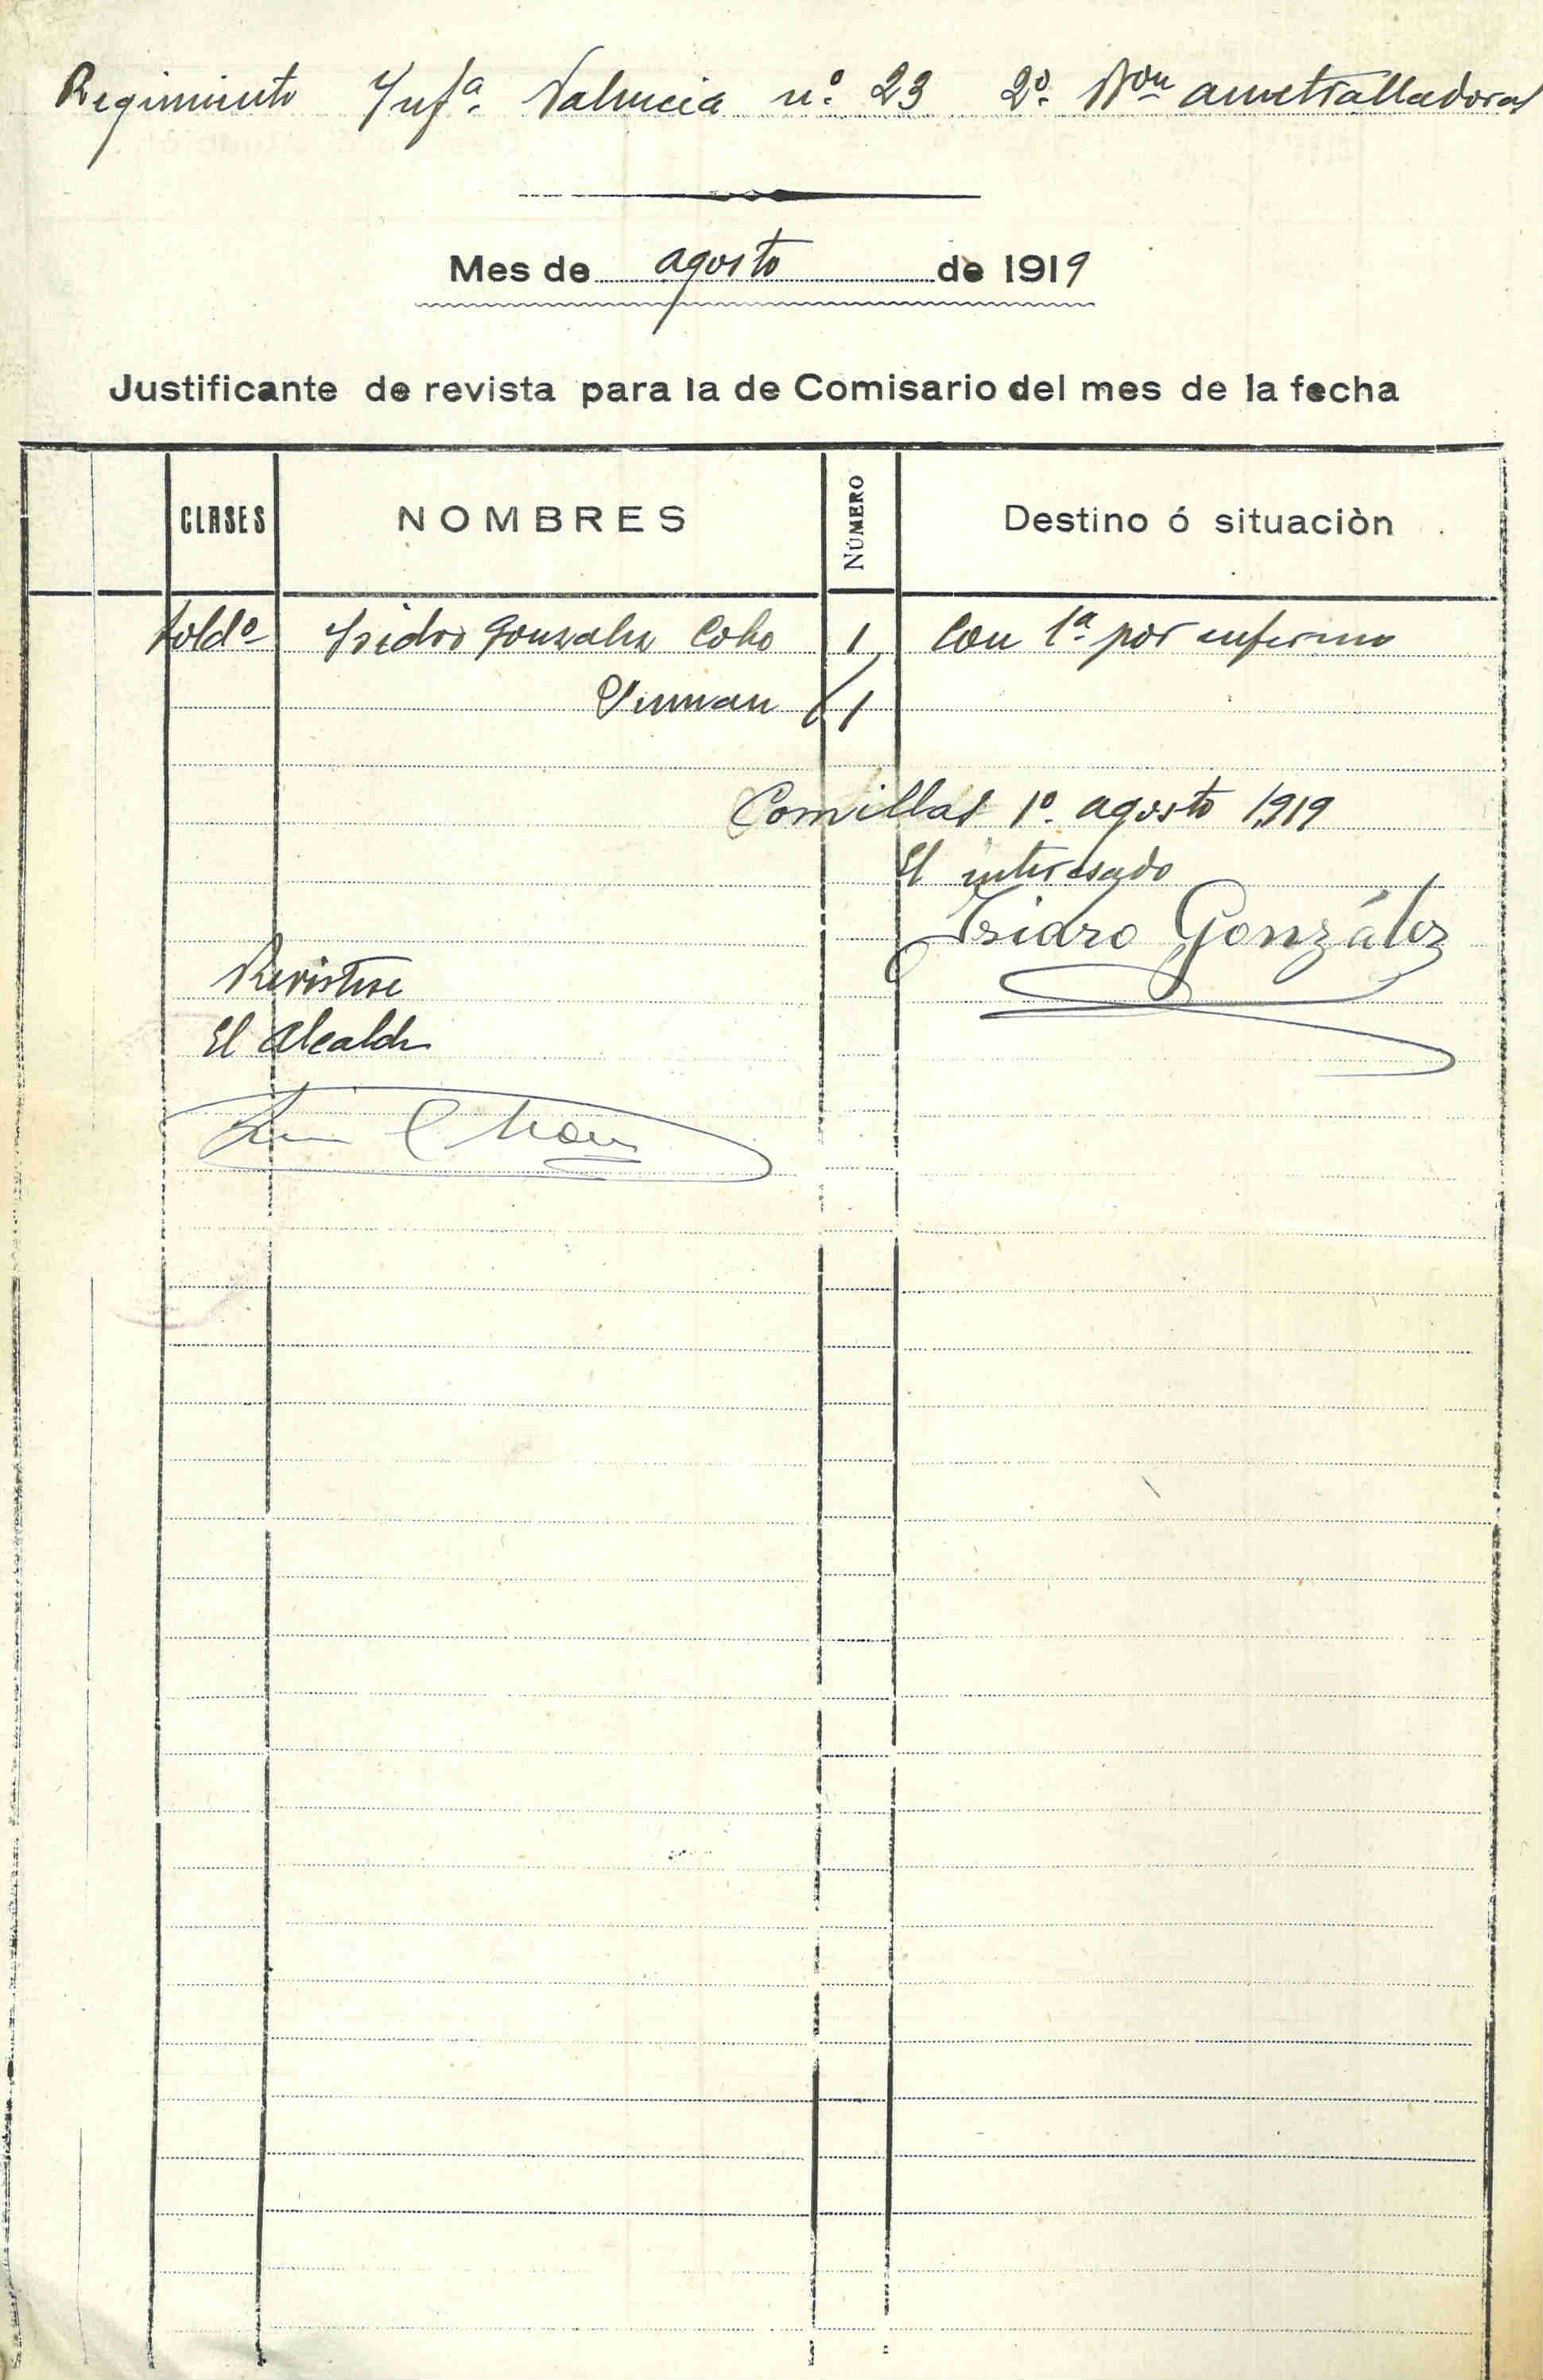 Regimiento Infª. Valencia nº. 23 2º. Bon ametralladoras
Mes de agosto de 1919
Justificante de revista para la de Comisario del mes de la fecha
CLASES NOMBRES NÚMERO Destino ó situaciòn
Soldº Isidro Gonzalez Cobo 1 Con lª por enfermo
Suman 1
Comillas 1º. agosto 1919
El interesado
Isidro González
Revistese
El Alcalde